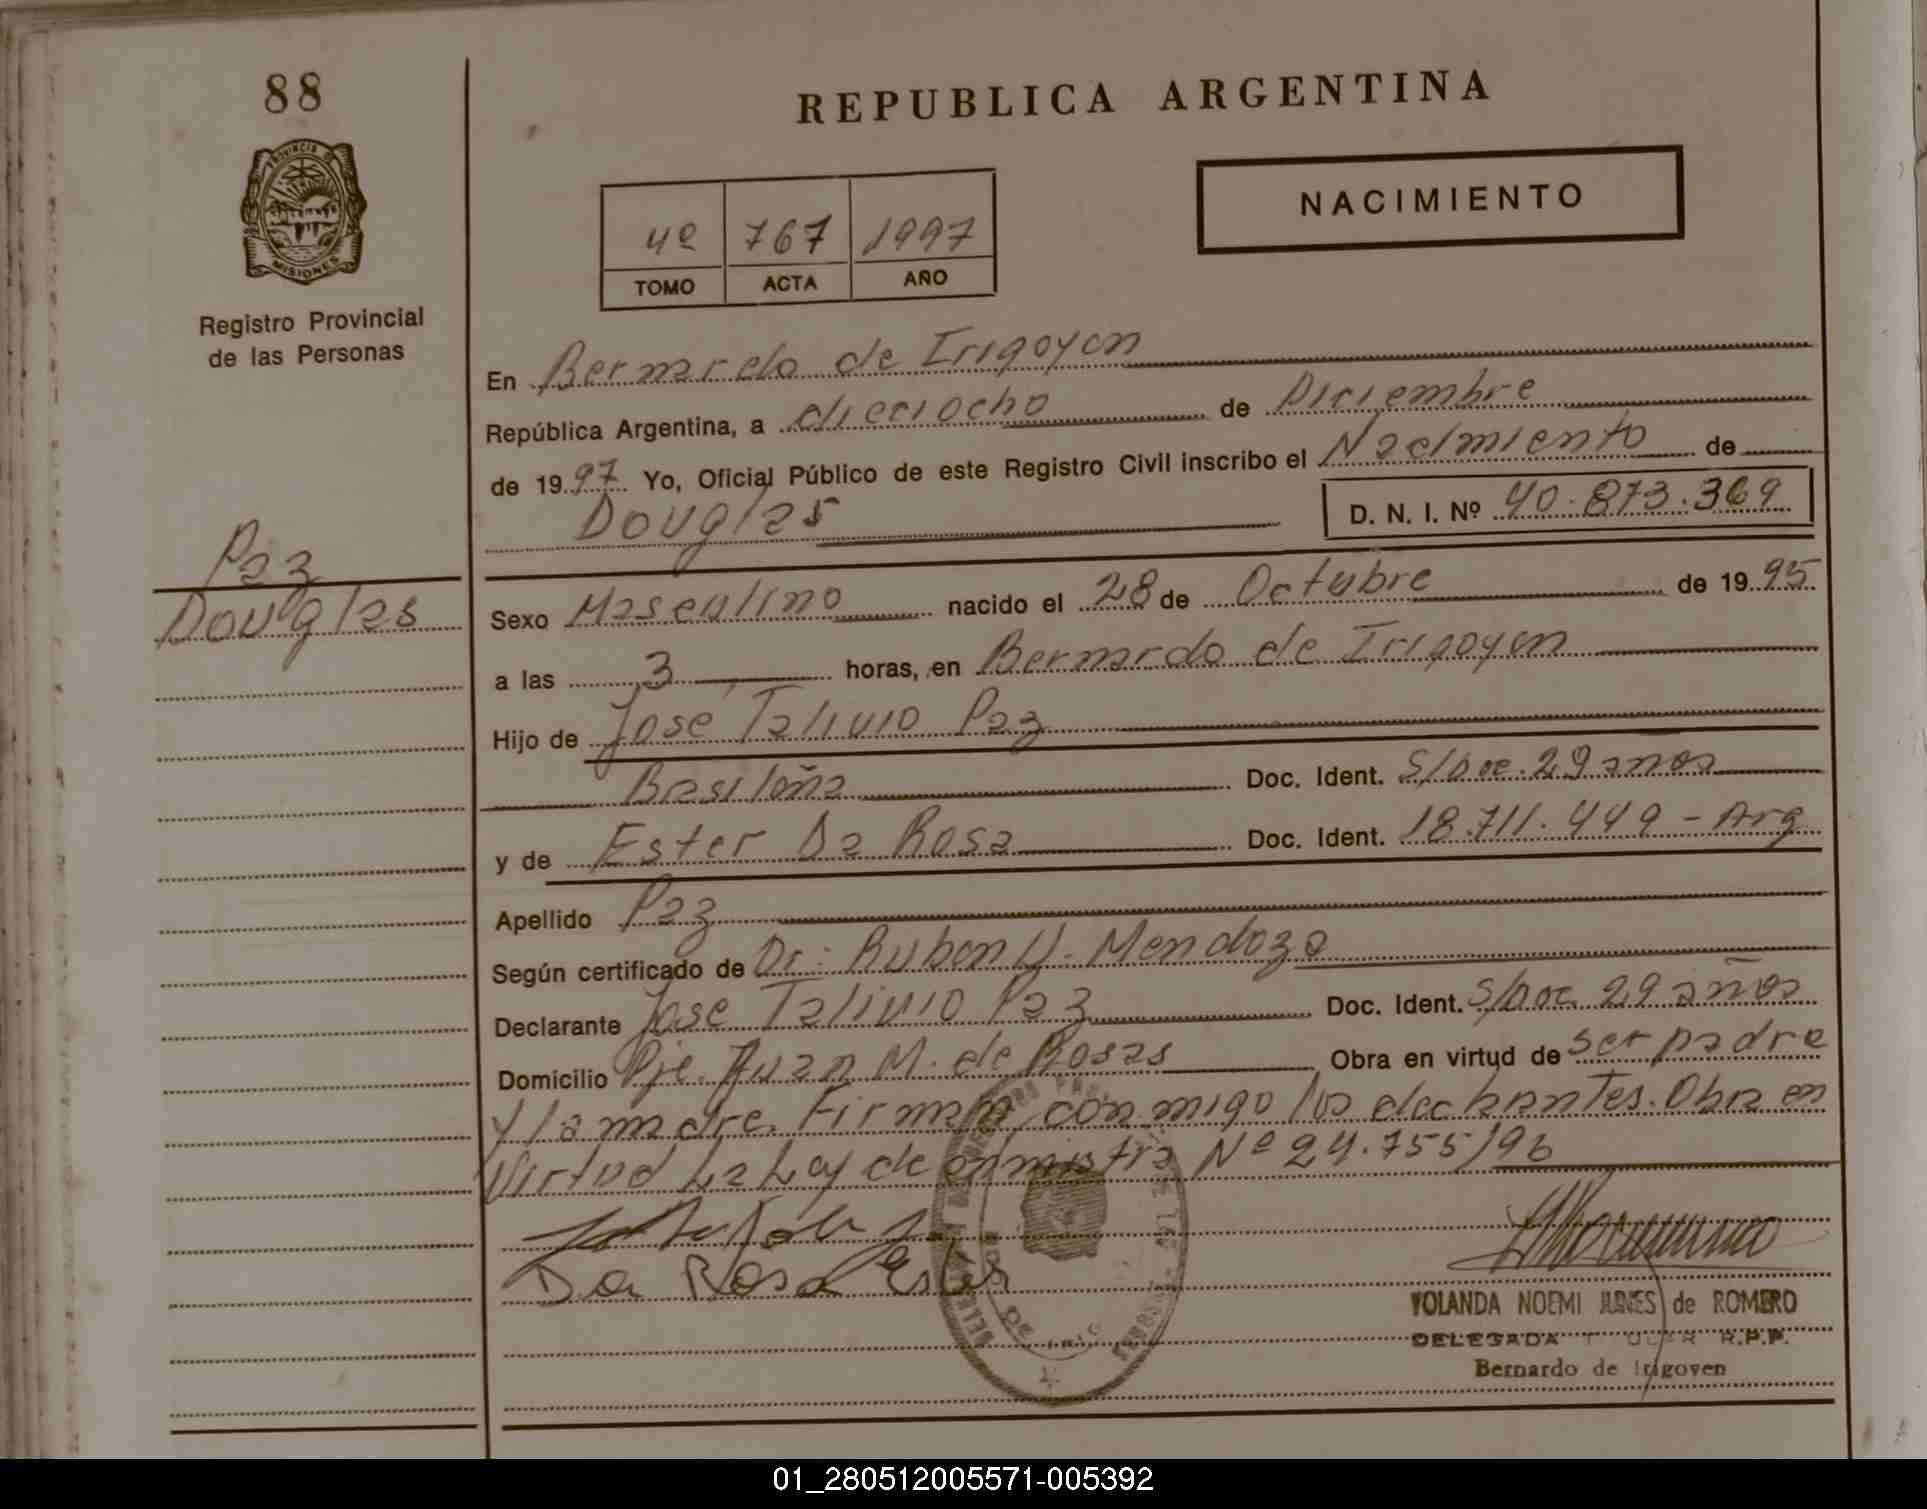 88
REPUBLICA ARGENTINA
PROVINCIA DE
MISIONES
Registro Provincial
de las Personas
4º 767 1997
TOMO ACTA AÑO
NACIMIENTO
En Bernardo de Irigoyen
República Argentina, a dieciocho de Diciembre
de 1997 Yo, Oficial Público de este Registro Civil inscribo el Nacimiento de
Douglas D. N. I. Nº 40.873.369
Paz
Douglas
Sexo Masculino nacido el 28 de Octubre de 1995
a las 3 horas, en Bernardo de Irigoyen
Hijo de Jose Talivio Paz
Brasileña Doc. Ident. S/Doc. 29 años
y de Ester Da Rosa Doc. Ident. 18.711.449 - Arg
Apellido Paz
Según certificado de Dr: Ruben U. Mendoza
Declarante Jose Talivio Paz Doc. Ident. S/Doc. 29 años
Domicilio Pje. Juan M. de Rosas Obra en virtud de ser padre
y la madre. Firman conmigo los declarantes. Obra en
Virtud La Ley de amnistia Nº 24.755/96
Da Rosa Ester
YOLANDA NOEMI JUNES de ROMERO
DELEGADA TITULAR R.P.P.
Bernardo de Irigoyen
01_280512005571-005392